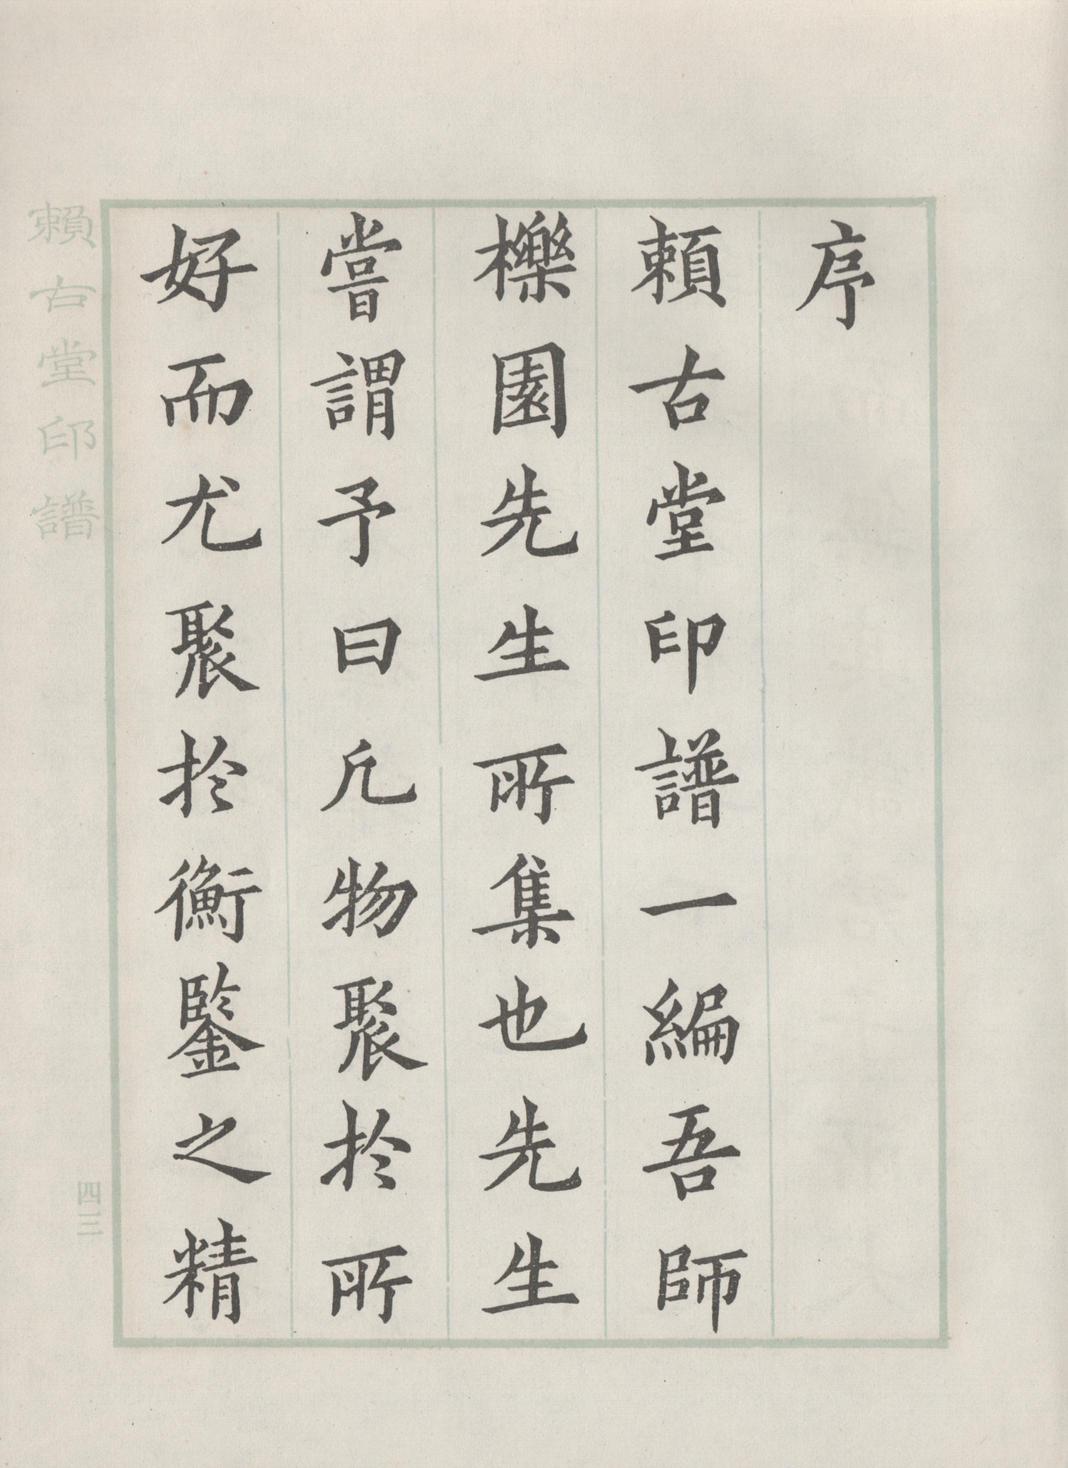 序
賴古堂印譜一編吾師
櫟園先生所集也先生
嘗謂予曰凡物聚於所
好而尤聚於衡鑒之精
賴古堂印譜
四三